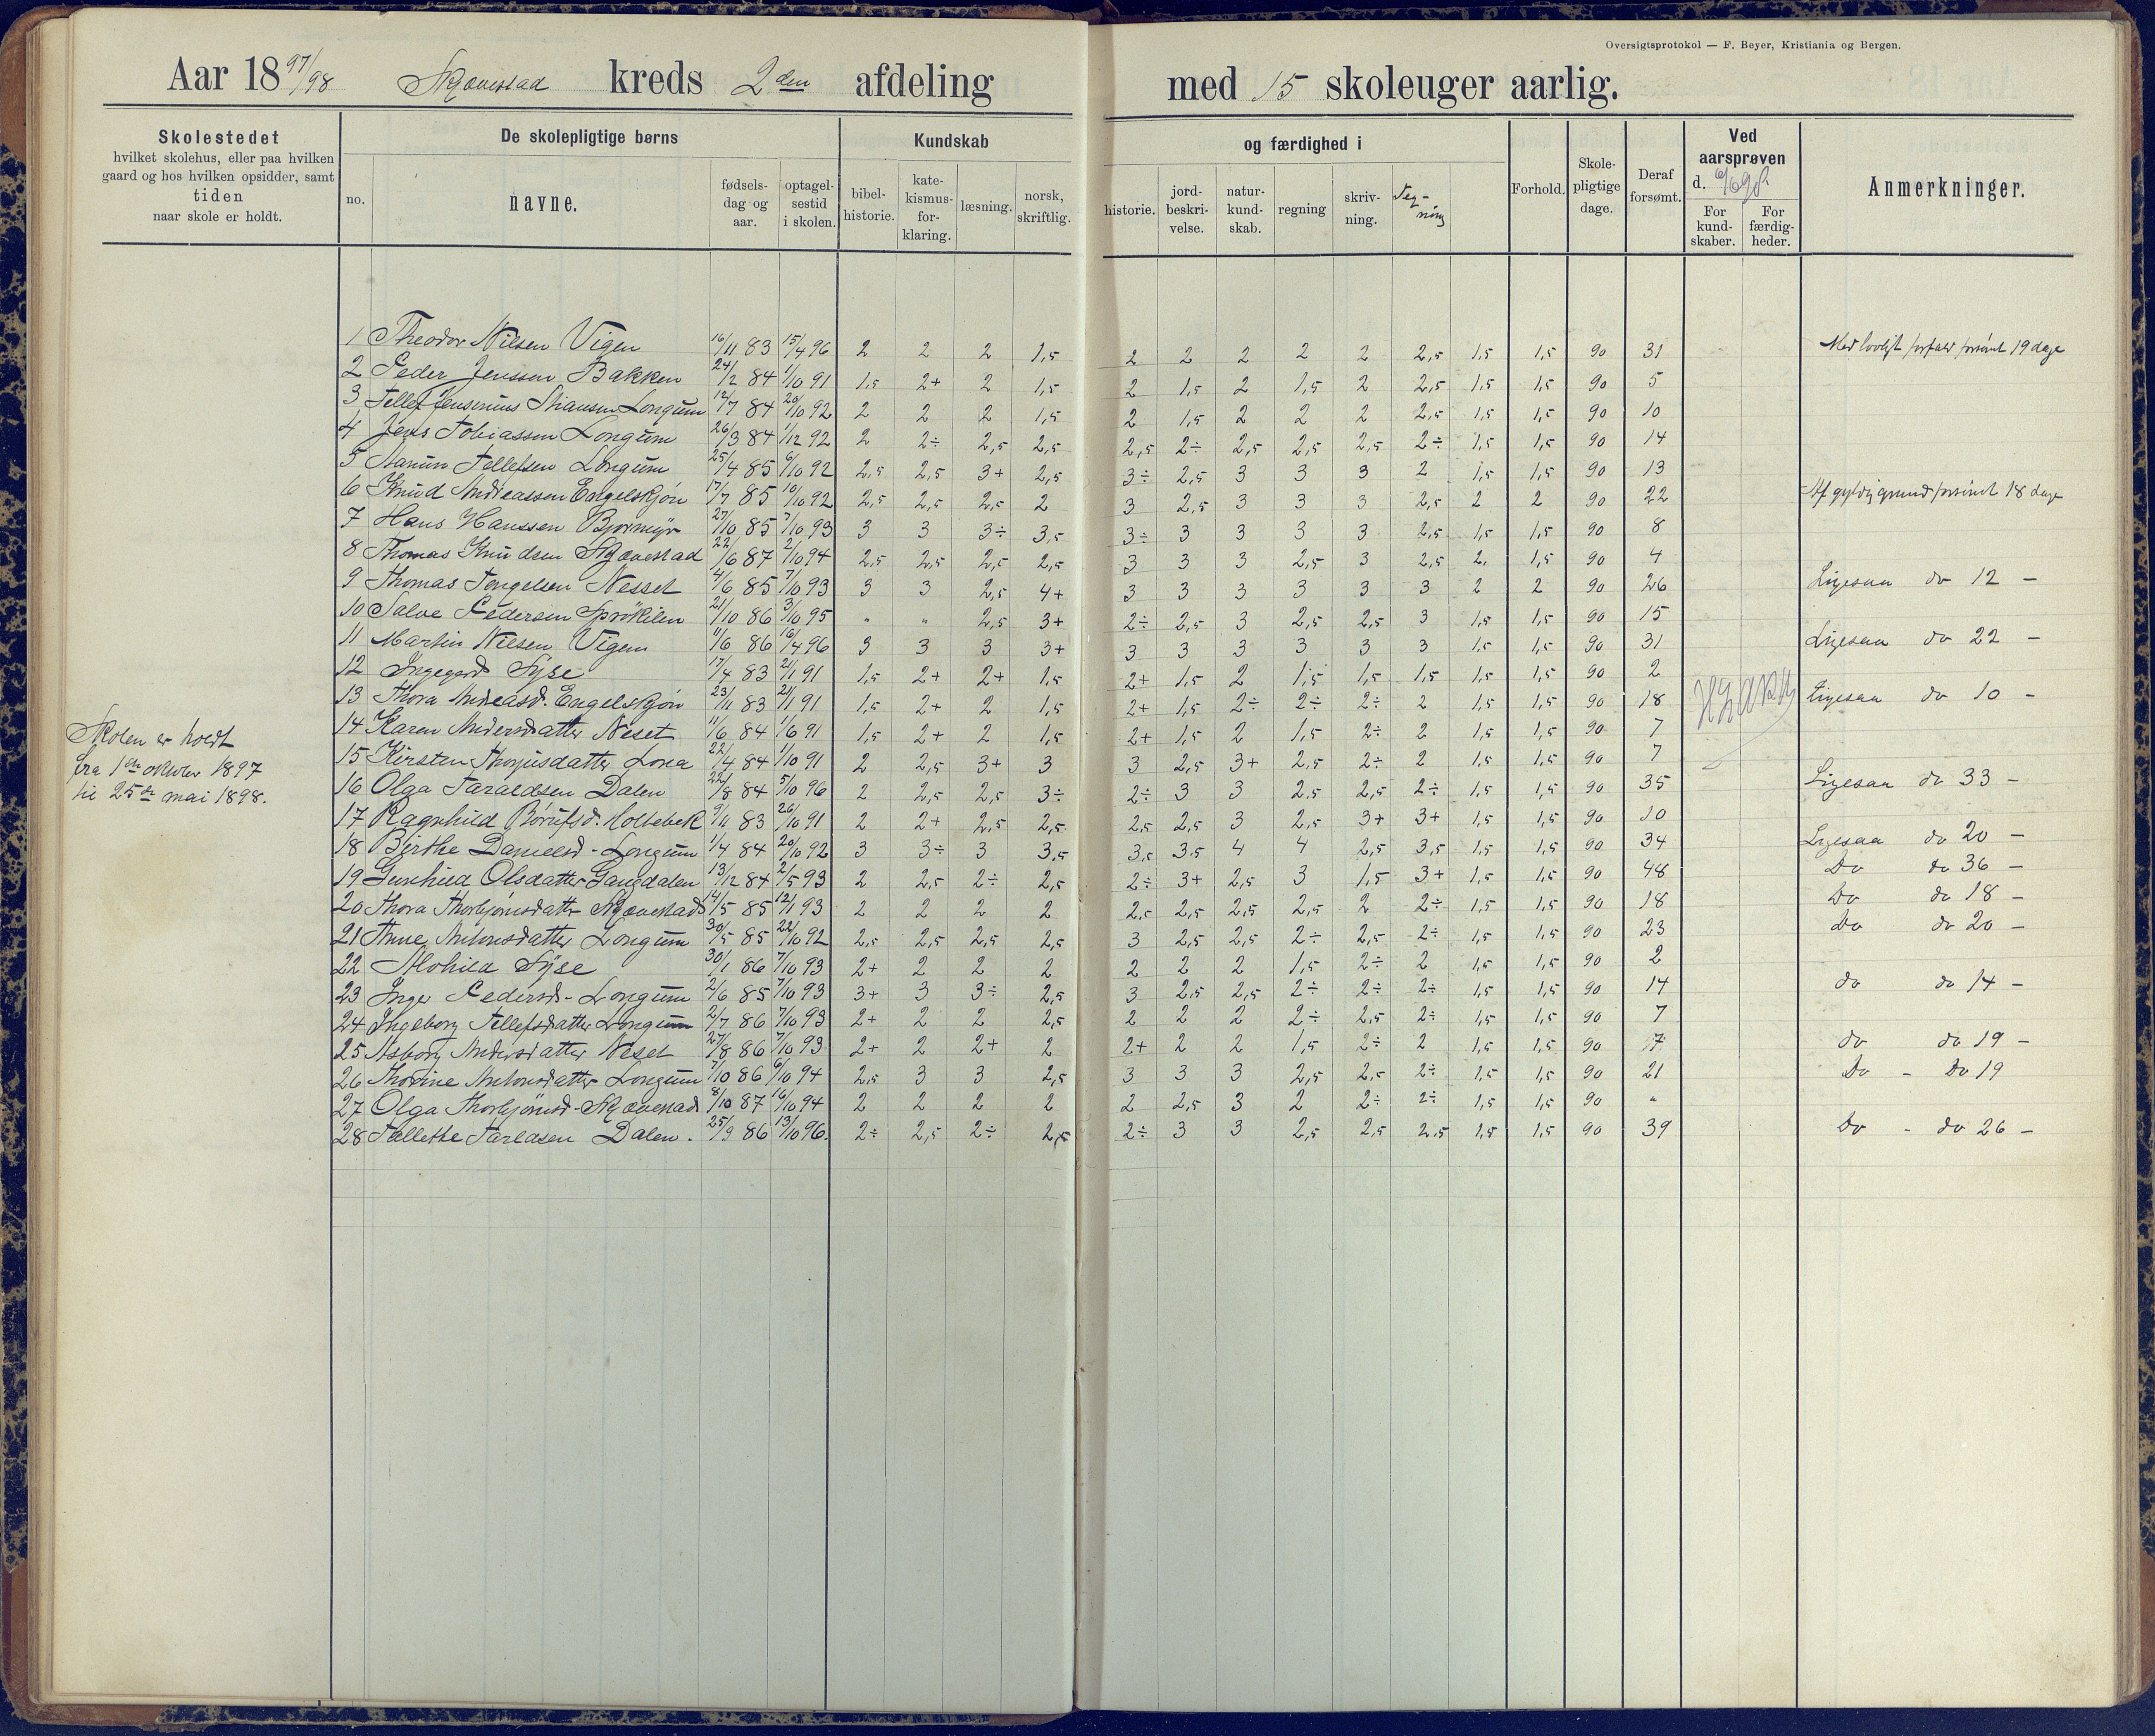 Oversigtsprotokol — F. Beyer, Kristiania og Bergen.
Aar 1897/98 Skjævestad kreds 2den afdeling med 15 skoleuger aarlig.
Skolestedet hvilket skolehus, eller paa hvilken gaard og hos hvilken opsidder, samt tiden naar skole er holdt.
De skolepligtige børns
no. navne. fødselsdag og aar. optagelsestid i skolen.
Kundskab og færdighed i
bibelhistorie. katekismusforklaring. læsning. norsk, skriftlig. historie. jordbeskrivelse. naturkundskab. regning skrivning. Tegning
Forhold. Skolepligtige dage. Deraf forsømt.
Ved aarsprøven d. 6/6 98.
For kundskaber. For færdigheder.
Anmerkninger.
1 Theodor Nilsen Vigen 16/11 83 15/4 96 2 2 2 1,5 2 2 2 2 2 2,5 1,5 1,5 90 31 Med lovligt forfald forsømt 19 dage
2 Peder Jenssen Bakken 24/2 84 1/10 91 1,5 2+ 2 1,5 2 1,5 2 1,5 2 2,5 1,5 1,5 90 5
3 Tellef Jensenius Longum 12/7 84 20/10 92 2 2 2 1,5 2 1,5 2 2 2 2,5 1,5 1,5 90 10
4 Jens Tobiassen Longum 26/3 84 1/12 92 2 2÷ 2,5 2,5 2,5 2÷ 2,5 2,5 2,5 2÷ 1,5 1,5 90 14
5 Aanun Tellefsen Longum 25/4 85 6/10 92 2,5 2,5 3+ 2,5 3÷ 2,5 3 3 3 2 1,5 1,5 90 13
6 Knud Andreassen Engelskjøn 17/7 85 10/10 92 2,5 2,5 2,5 2 3 2,5 3 3 3 2,5 2 2 90 22 Af gyldig grund forsømt 18 dage
7 Hans Hanssen Bjormyr 27/10 85 7/10 93 3 3 3÷ 3,5 3÷ 3 3 3 3 2,5 1,5 1,5 90 8
8 Thomas Knudsen Skjævestad 22/6 87 2/10 94 2,5 2,5 2,5 2,5 3 3 3 2,5 3 2,5 2. 1,5 90 4
9 Thomas Tengelsen Nesset 4/6 85 7/10 93 3 3 2,5 4+ 3 3 3 3 3 3 2 2 90 26 Ligesaa do 12 -
10 Salve Pedersen Sprøkilen 21/10 86 3/10 95 " " 2,5 3+ 2÷ 2,5 3 2,5 2,5 3 1,5 1,5 90 15
11 Martin Nilsen Vigen 11/6 86 16/4 96 3 3 3 3+ 3 3 3 3 3 3 1,5 1,5 90 31 Ligesaa do 22 -
12 Ingegerd Syse 17/4 83 21/1 91 1,5 2+ 2+ 1,5 2+ 1,5 2 1,5 1,5 1,5 1,5 1,5 90 2
13 Thora Andreasd. Engelskjøn 23/11 83 21/1 91 1,5 2+ 2 1,5 2+ 1,5 2÷ 2÷ 2÷ 2 1,5 1,5 90 18 Ligesaa do 10 -
14 Karen Andersdatter Neset 11/6 84 1/6 91 1,5 2+ 2 1,5 2+ 1,5 2 1,5 2÷ 2 1,5 1,5 90 7
Skolen er holdt
fra 1ste oktober 1897
til 25de mai 1898.
15 Kirsten Thorjusdatter Lona 22/4 84 1/10 91 2 2,5 3+ 3 3 2,5 3+ 2,5 2÷ 2 1,5 1,5 90 7
16 Olga Taraldsen Dalen 22/8 84 5/10 96 2 2,5 2,5 3÷ 2÷ 3 3 2,5 2,5 2÷ 1,5 1,5 90 35 Ligesaa do 33 -
17 Ragnhild Børufsd. Holtebek 9/11 83 26/10 91 2 2+ 2,5 2,5 2,5 2,5 3 2,5 3+ 3+ 1,5 1,5 90 10
18 Birthe Danielsd - Longum 1/4 84 20/10 92 3 3÷ 3 3,5 3,5 3,5 4 4 2,5 3,5 1,5 1,5 90 34 Ligesaa do 20 -
19 Gunhild Olsdatter Langdalen 13/12 84 2/5 93 2 2,5 2÷ 2,5 2÷ 3+ 2,5 3 1,5 3+ 1,5 1,5 90 48 Do do 36 -
20 Thora Thorbjørnsdatter Skjævestad 14/5 85 12/1 93 2 2 2 2 2,5 2,5 2,5 2,5 2 2÷ 1,5 1,5 90 18 Do do 18 -
21 Anne Antonsdatter Longum 30/5 85 22/10 92 2,5 2,5 2,5 2,5 3 2,5 2,5 2÷ 2,5 2÷ 1,5 1,5 90 23 Do do 20 -
22 Syse 30/1 86 7/10 93 2+ 2 2 2 2 2 2 1,5 2÷ 2 1,5 1,5 90 2
23 Inger Pedersd - Longum 2/6 85 7/10 93 3+ 3 3÷ 2,5 3 2,5 2,5 2÷ 2÷ 2÷ 1,5 1,5 90 14 do do 14 -
24 Ingeborg Tellefsdatter Longum 2/7 86 7/10 93 2+ 2 2 2,5 2 2 2 2÷ 2,5 2÷ 1,5 1,5 90 7
25 Asborg Andersdatter Neset 27/8 86 7/10 93 2+ 2 2+ 2 2+ 2 2 1,5 2÷ 2 1,5 1,5 90 17 do do 19 -
26 Thorine Antonsdatter Longum 7/10 86 6/10 94 2,5 3 3 2,5 3 3 3 2,5 2,5 2÷ 1,5 1,5 90 21 Do - Do 19
27 Olga Thorbjørnsd - Skjævestad 8/10 87 16/10 94 2 2 2 2 2 2,5 3 2 2÷ 2÷ 1,5 1,5 90 "
28 Tallethe Tarldsen Dalen. 25/9 86 13/10 96. 2÷ 2,5 2÷ 2,5 2÷ 3 3 2,5 2,5 2,5 1,5 1,5 90 39 Do - do 26 -